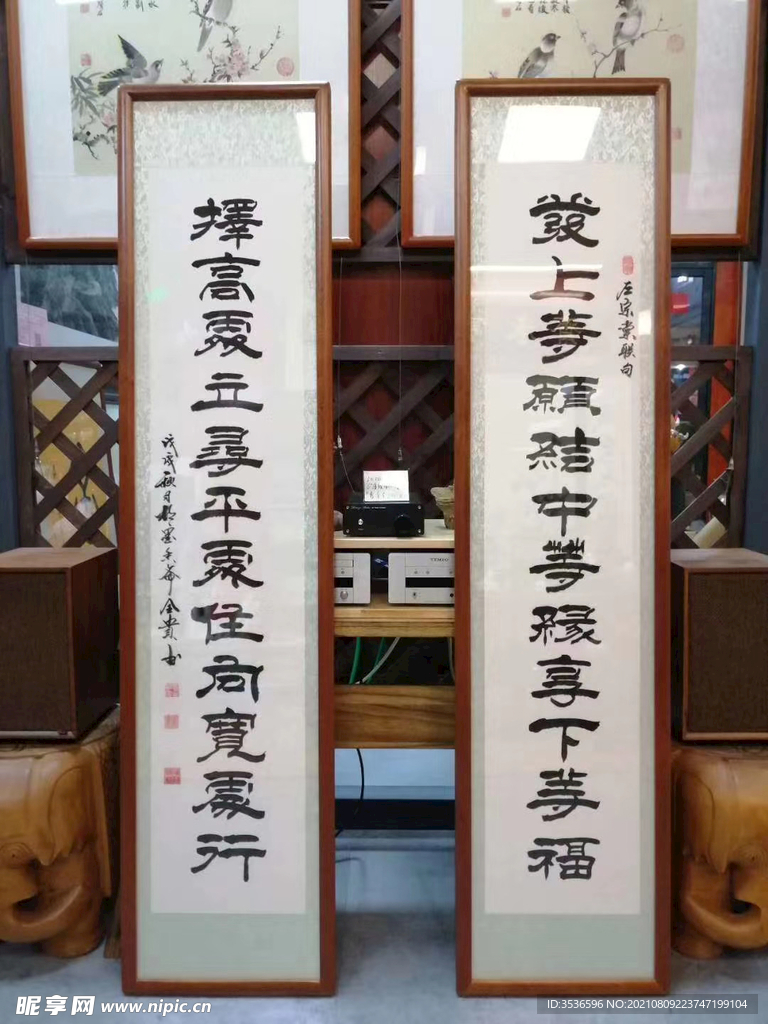 發上等願結中等緣享下等福
左宗棠联句
擇高處立尋平處住向寬處行
戊戌秋月
金貴书
昵享网 www.nipic.cn
ID:3536596 NO:20210809223747199104